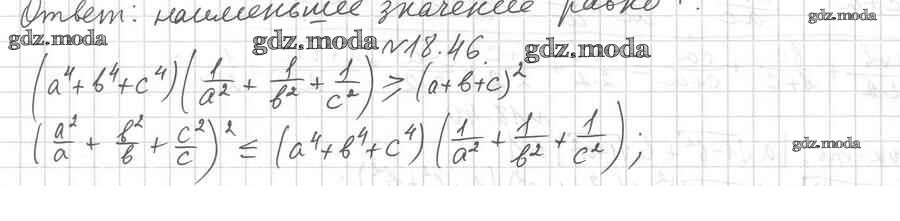 Ответ: наименьшее значение равно
gdz.moda
gdz.moda
gdz.moda
N18.46.
gdz.moda
(a⁴+b⁴+c⁴)(1/a² + 1/b² + 1/c²) ≥ (a+b+c)²
(a²/a + b²/b + c²/c)² ≤ (a⁴+b⁴+c⁴)(1/a² + 1/b² + 1/c²);
gdz.moda